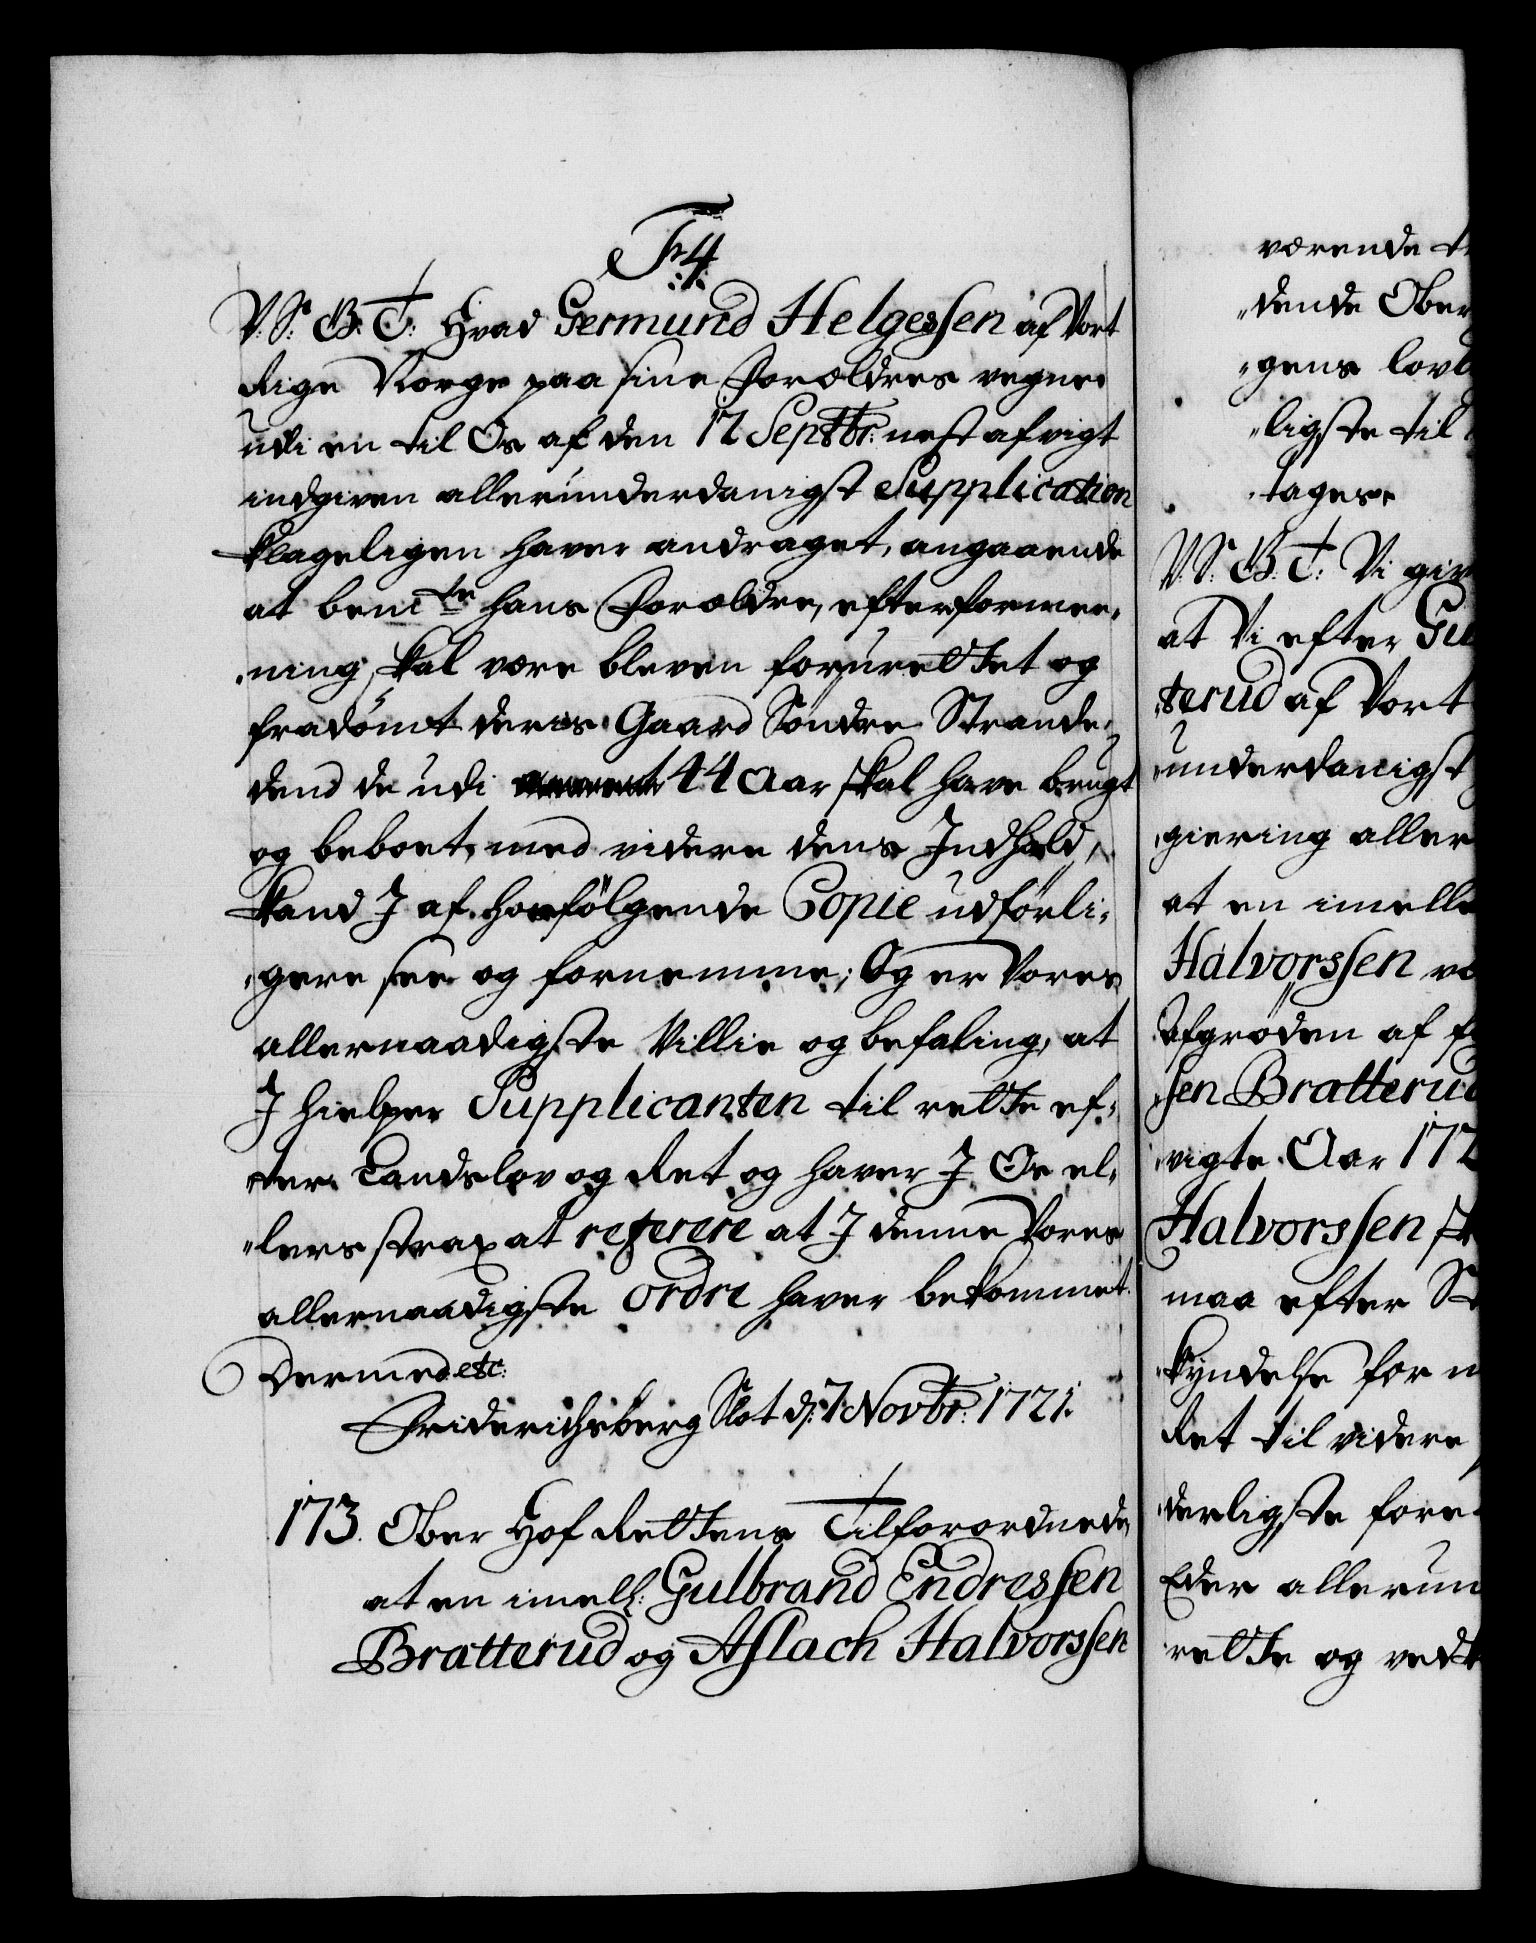 Fr. 4
V: S: G: T: Hvad Germund Helgessen af Vort
Rige Norge paa sine Forældres vegne
udi en til Os af den 12 Septbr: nest afvigt
indgiven allerunderdanigst Supplication
klageligen haver andraget, angaaende
at bemte hans Forældre, efter formee-
ning skal være bleven foruretTet og
fradömt deris Gaard Söndre Strande,
dend de udi 44 Aar skal have brugt
og beboet, med videre dens Indhold,
kand I af hosfölgende Copie udförli-
gere see og fornemme; Og er Vores
allernaadigste Villie og befaling, at
I hielper Supplicanten til retTe ef-
ter Landslov og Ret og haver I Os el-
lers strax at referere at I denne Vores
allernaadigste ordre haver bekommet.
Dermed etc:
Friderichsberg Slot d: 7 Novbr: 1721.
173. Ober Hof RetTens Tilforordnede,
at en imell: Gulbrand Endressen
Bratterud og Aslach Halvorssen
værende
dende Ober
gens
ligste til
tages.
V: S: G: T: Vi giv
at Vi efter
terud af Vort
underdanigst
giering aller
at en imelle
Halvorssen
Afgröden af
sen Bratterud
vigte Aar 172
Halvorssen
maa efter
kyndelse for
Ret til videre
derligste fore
Eder allerun
retTe og